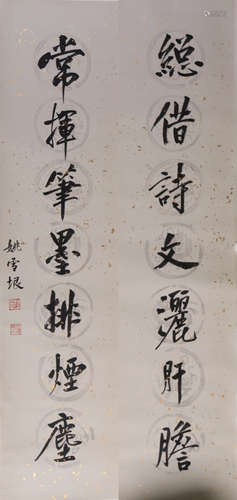 總借詩文灑肝膽
常揮筆墨排煙塵
姚雪垠